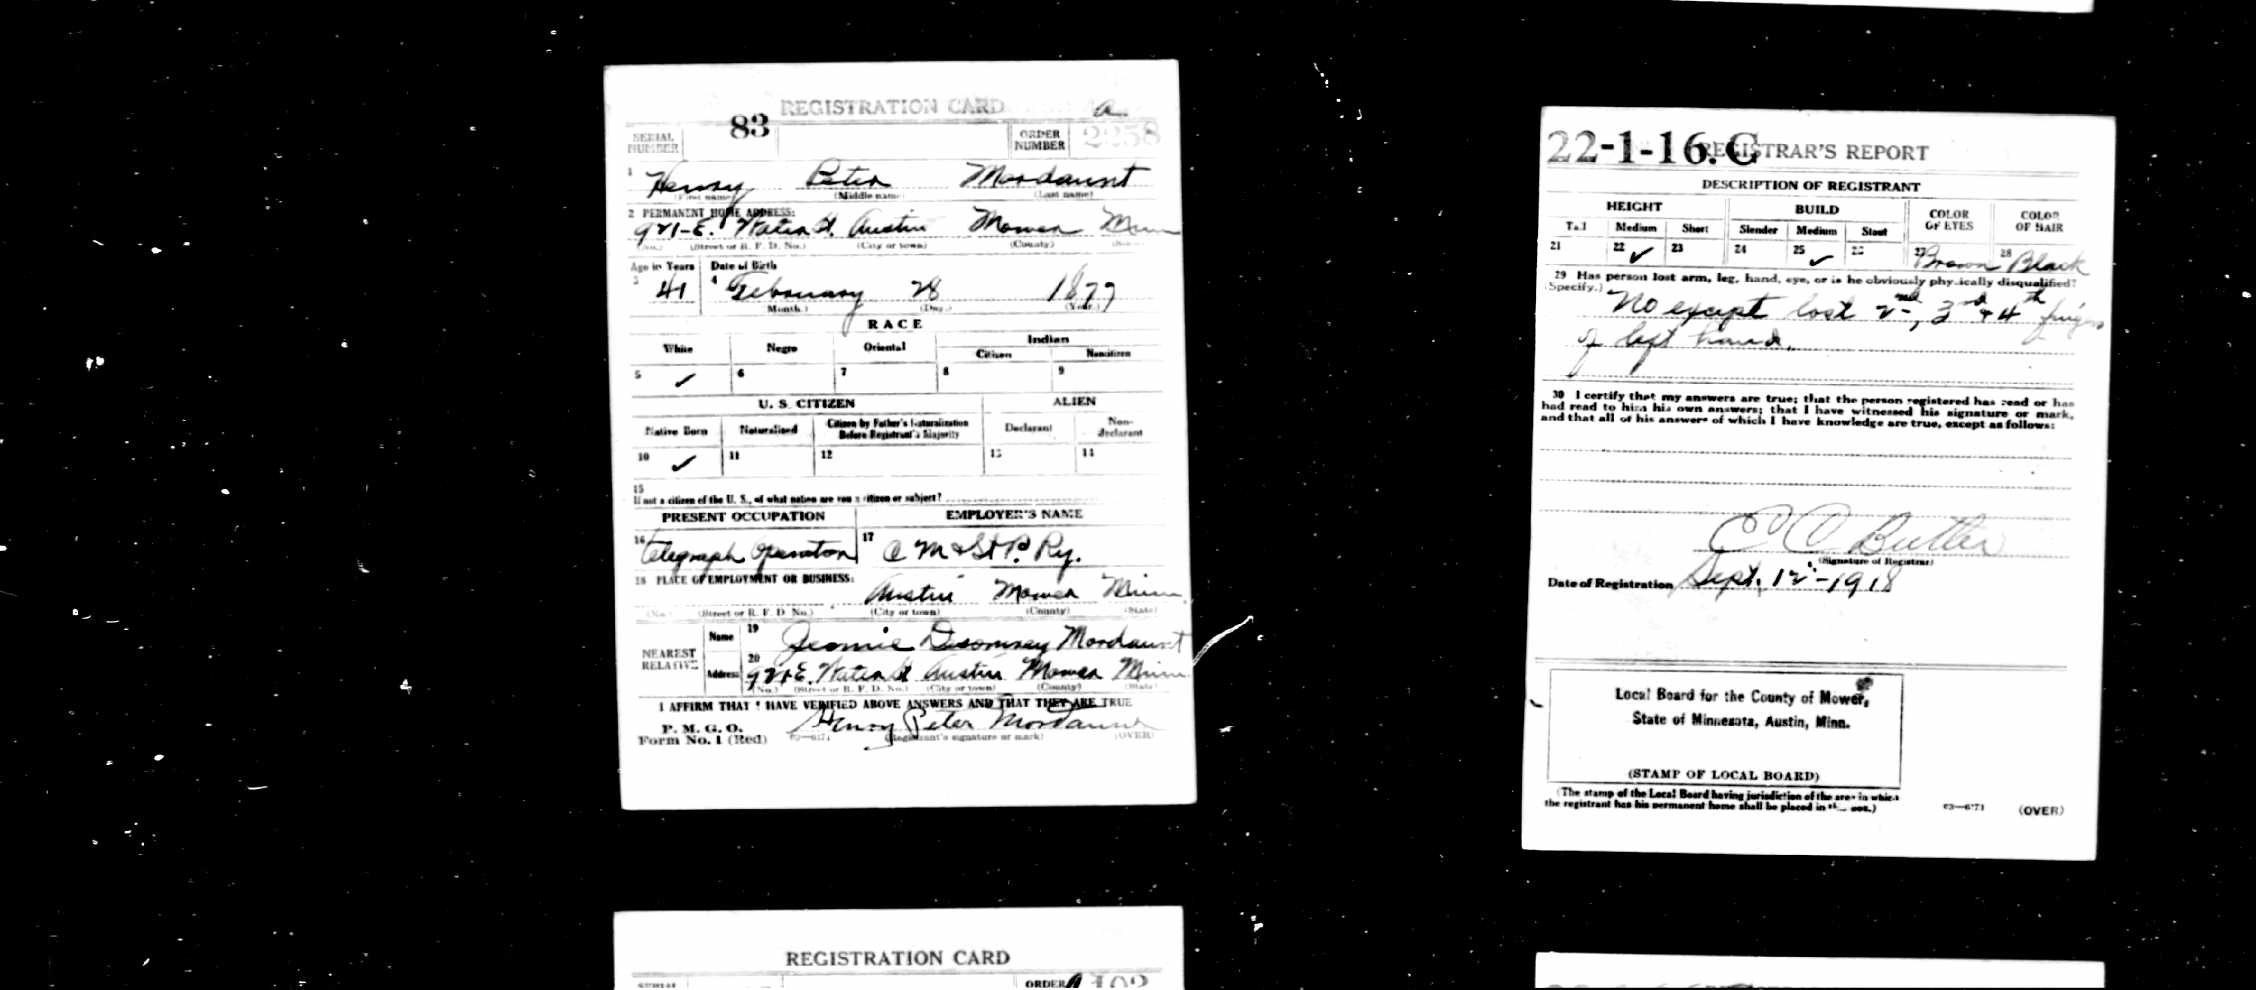 REGISTRATION CARD a.
SERIAL NUMBER 83 ORDER NUMBER 2258
1 Henry Peter Mordaunt
(First name) (Middle name) (Last name)
2 PERMANENT HOME ADDRESS:
921-E. Water St. Austin Mower Minn
(No.) (Street or R. F. D. No.) (City or town) (County) (State)
Age in Years Date of Birth
3 41 4 February 28 1877
(Month.) (Day.) (Year.)
RACE
White Negro Oriental Indian
Citizen Noncitizen
5 ✓ 6 7 8 9
U. S. CITIZEN ALIEN
Native Born Naturalized Citizen by Father's Naturalization Before Registrant's Majority Declarant Non-declarant
10 ✓ 11 12 13 14
15
If not a citizen of the U. S., of what nation are you a citizen or subject?
PRESENT OCCUPATION EMPLOYER'S NAME
16 Telegraph Operator 17 C M & St. P. Ry.
18 PLACE OF EMPLOYMENT OR BUSINESS:
Austin Mower Minn
(No.) (Street or R. F. D. No.) (City or town) (County) (State)
NEAREST RELATIVE Name 19 Jennie Mordaunt
Address 20 921 E. Water St Austin Mower Minn.
(No.) (Street or R. F. D. No.) (City or town) (County) (State)
I AFFIRM THAT I HAVE VERIFIED ABOVE ANSWERS AND THAT THEY ARE TRUE
P. M. G. O.
Form No. 1 (Red) 03—6171 Henry Peter Mordaunt
(Registrant's signature or mark) (OVER)
22-1-16. C REGISTRAR'S REPORT
DESCRIPTION OF REGISTRANT
HEIGHT BUILD COLOR OF EYES COLOR OF HAIR
Tall Medium Short Slender Medium Stout
21 22 ✓ 23 24 25 ✓ 26 27 Brown 28 Black
29 Has person lost arm, leg, hand, eye, or is he obviously physically disqualified?
(Specify.) No except lost 2nd, 3rd & 4th fingers
of left hand.
30 I certify that my answers are true; that the person registered has read or has
had read to him his own answers; that I have witnessed his signature or mark,
and that all of his answers of which I have knowledge are true, except as follows:
E C Butler
(Signature of Registrar)
Date of Registration Sept. 12-1918
Local Board for the County of Mower,
State of Minnesota, Austin, Minn.
(STAMP OF LOCAL BOARD)
(The stamp of the Local Board having jurisdiction of the area in which
the registrant has his permanent home shall be placed in this box.)
03—6171 (OVER)
REGISTRATION CARD
SERIAL ORDER